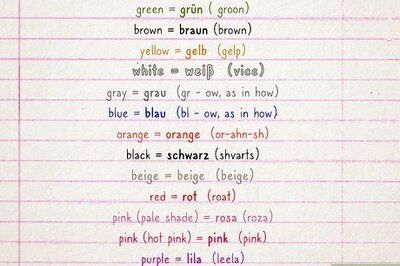 green = grün ( groon)
brown = braun (brown)
yellow = gelb (gelp)
white = weiβ (vice)
gray = grau (gr - ow, as in how)
blue = blau (bl - ow, as in how}
orange = orange (or-ahn-sh)
black = schwarz (shvarts)
beige = beige (beige)
red = rot (roat)
pink (pale shade) = rosa (roza)
pink (hot pink) = pink (pink)
purple = lila (leela)